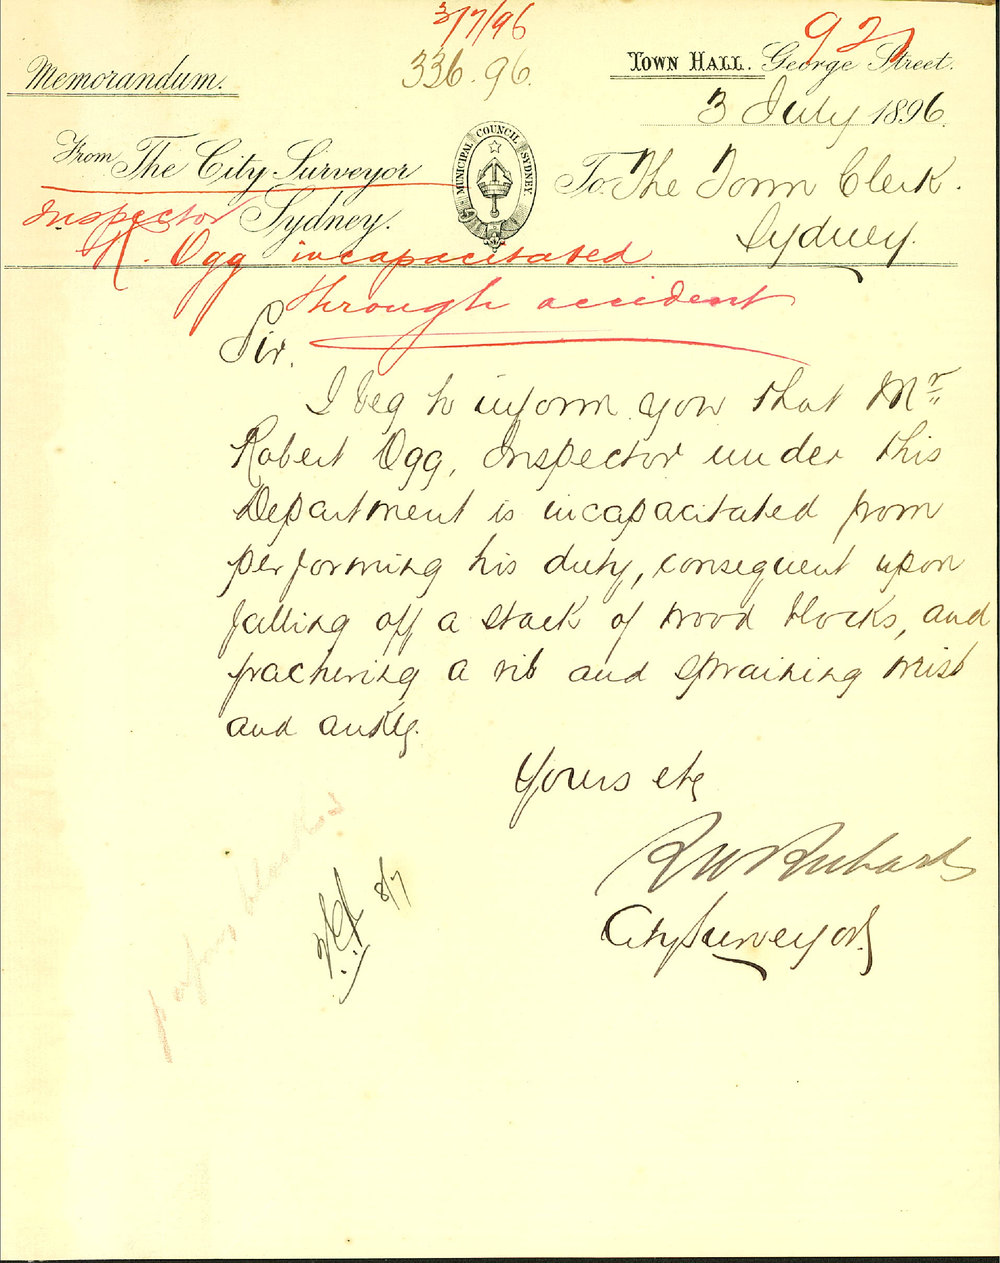 3/7/96
927
336.96.
Memorandum.
TOWN HALL. George Street.
3 July 1896.
From The City Surveyor
Sydney.
MUNICIPAL COUNCIL SYDNEY.
To The Town Clerk.
Sydney.
Inspector
R. Ogg incapacitated
through accident
Sir.
I beg to inform you that Mr
Robert Ogg, Inspector under this
Department is incapacitated from
performing his duty, consequent upon
falling off a stack of wood blocks, and
fracturing a rib and spraining wrist
and ankle.
Yours etc
R W Richards
City Surveyor
8/7